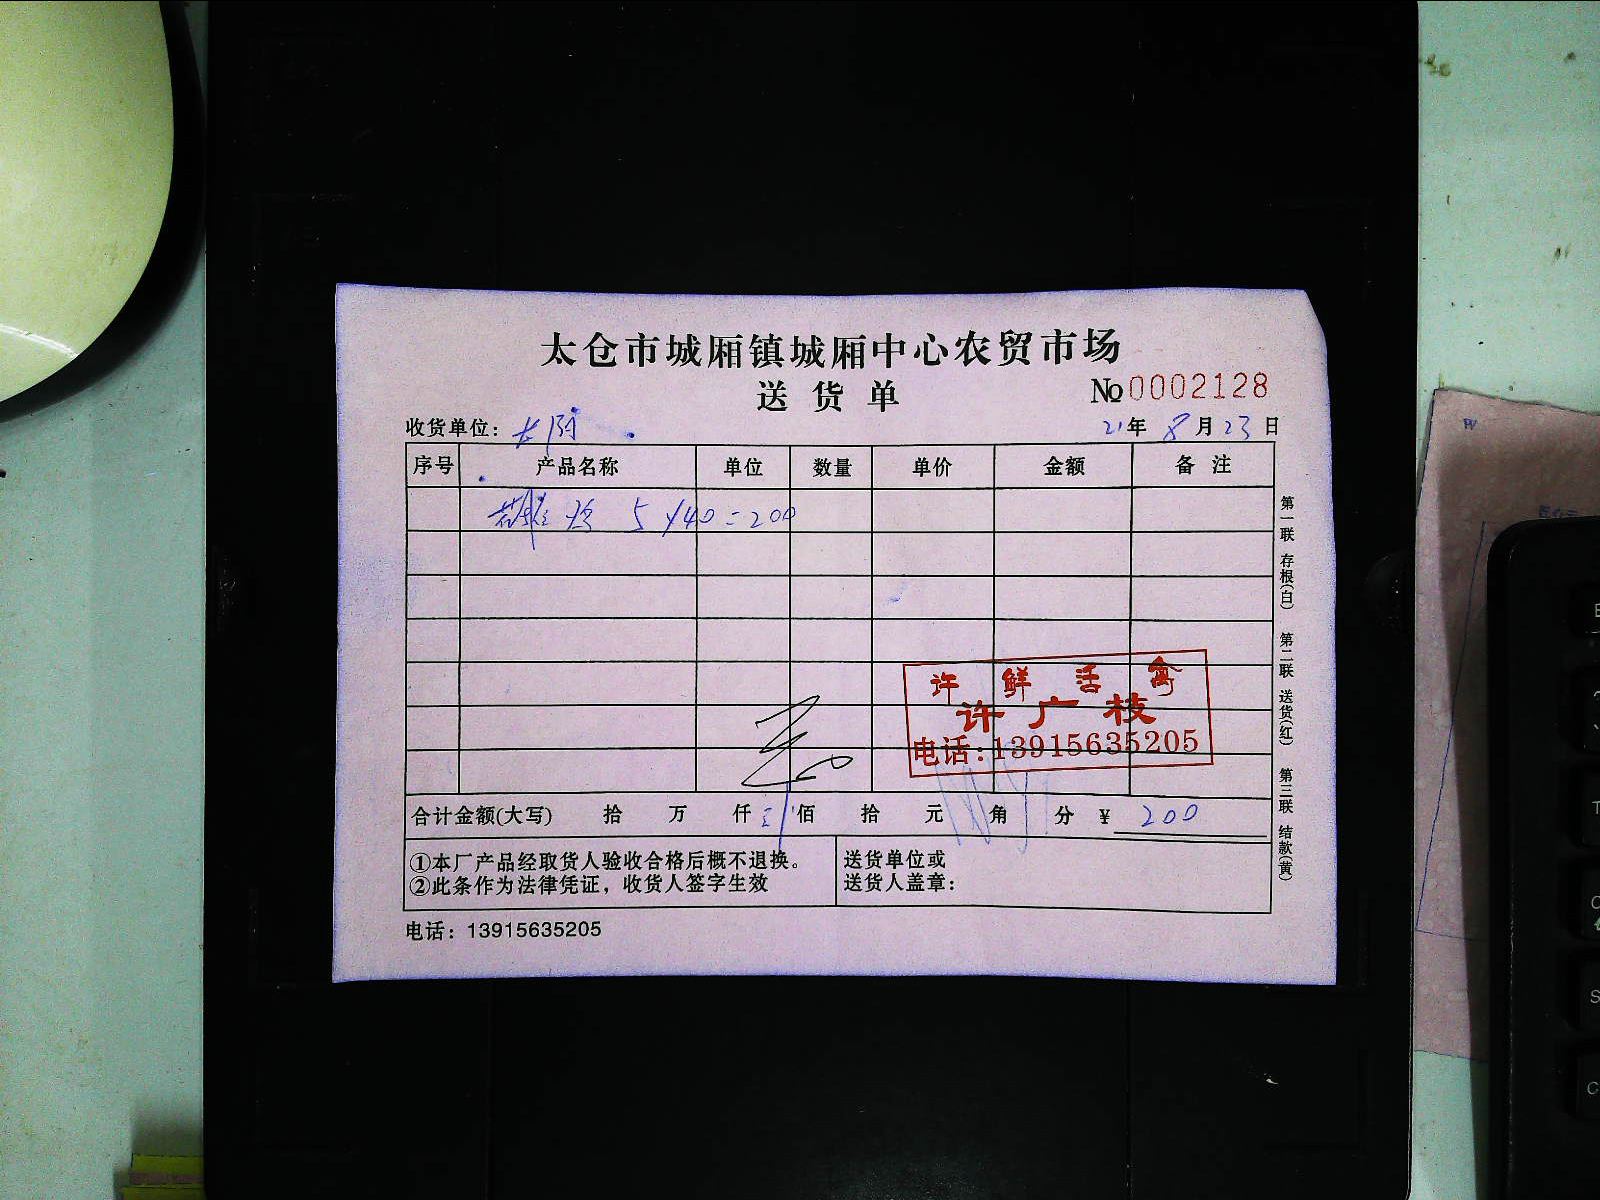 太仓市城厢镇城厢中心农贸市场
送货单 № 0002128
收货单位： 21年 8月 23日
序号 产品名称 单位 数量 单价 金额 备注
5×40=200
许 鲜 活 禽
许广枝
电话:13915635205
合计金额(大写) 拾 万 仟 佰 拾 元 角 分 ¥ 200
①本厂产品经取货人验收合格后概不退换。
②此条作为法律凭证，收货人签字生效
送货单位或
送货人盖章：
电话：13915635205
第一联 存根(白) 第二联 送货(红) 第三联 结款(黄)